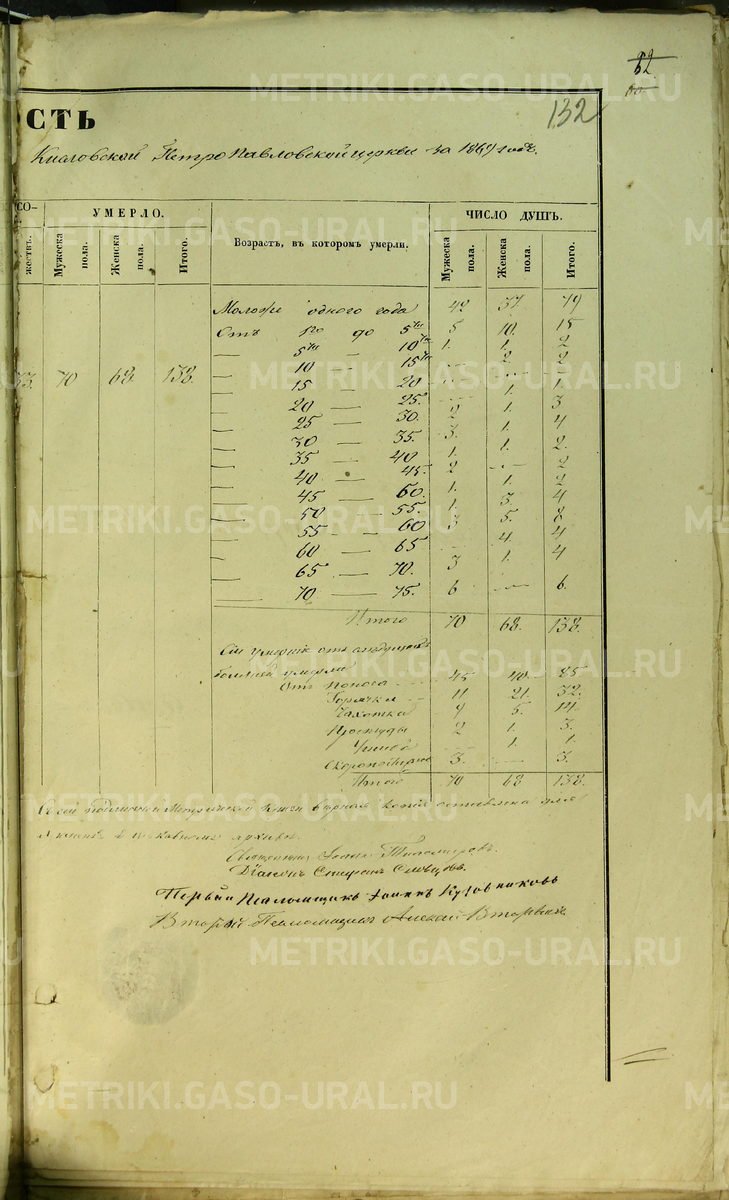 132
ОСТЬ
Петро Павловской церкви за 186 годъ.
УМЕРЛО.
ЧИСЛО ДУШЪ.
СО-
жествъ.
Мужеска пола.
Женска пола.
Итого.
Возрастъ, въ которомъ умерли.
Мужеска пола.
Женска пола.
Итого.
Моложе одного года 42 37 79
Отъ 1го до 5ти 5 10. 15
— 5ти — 10ти 1. 1. 2
— 10 — 15ти --- 2. 2
— 15 — 20 --- 1. 1.
— 20 — 25. 2 1. 3
— 25 — 30. 3. 1. 4
— 30 — 35. 1. 1. 2.
— 35 — 40 2 --- 2
— 40 — 45. 1. 1. 2
— 45 — 50. 1. 3 4
— 50 — 55. 3 5. 8
— 55 — 60 --- 4. 4
— 60 — 65 3 1. 4
— 65 — 70.
— 70 — 75. 6 --- 6.
33. 70 68. 138.
Итого 70 68. 138.
Сіи умершіе отъ
болезней умерли
Отъ поноса 45 40 85
Горячки 11 21. 32.
Чахотки 9 5. 14.
Простуды 2 1. 3.
1. 1.
Скоропостижно 3. --- 3.
Итого 70 68 138.
Съ сей подлинной Метрической Книги верная копія оставлена для
храненія въ церковномъ архиве.
Священникъ Іоаннъ Тихомировъ.
Діаконъ Стефанъ
Первый Псаломщикъ Іоаннъ Кузовниковъ
Второй Псаломщикъ Алексей
METRIKI.GASO-URAL.RU